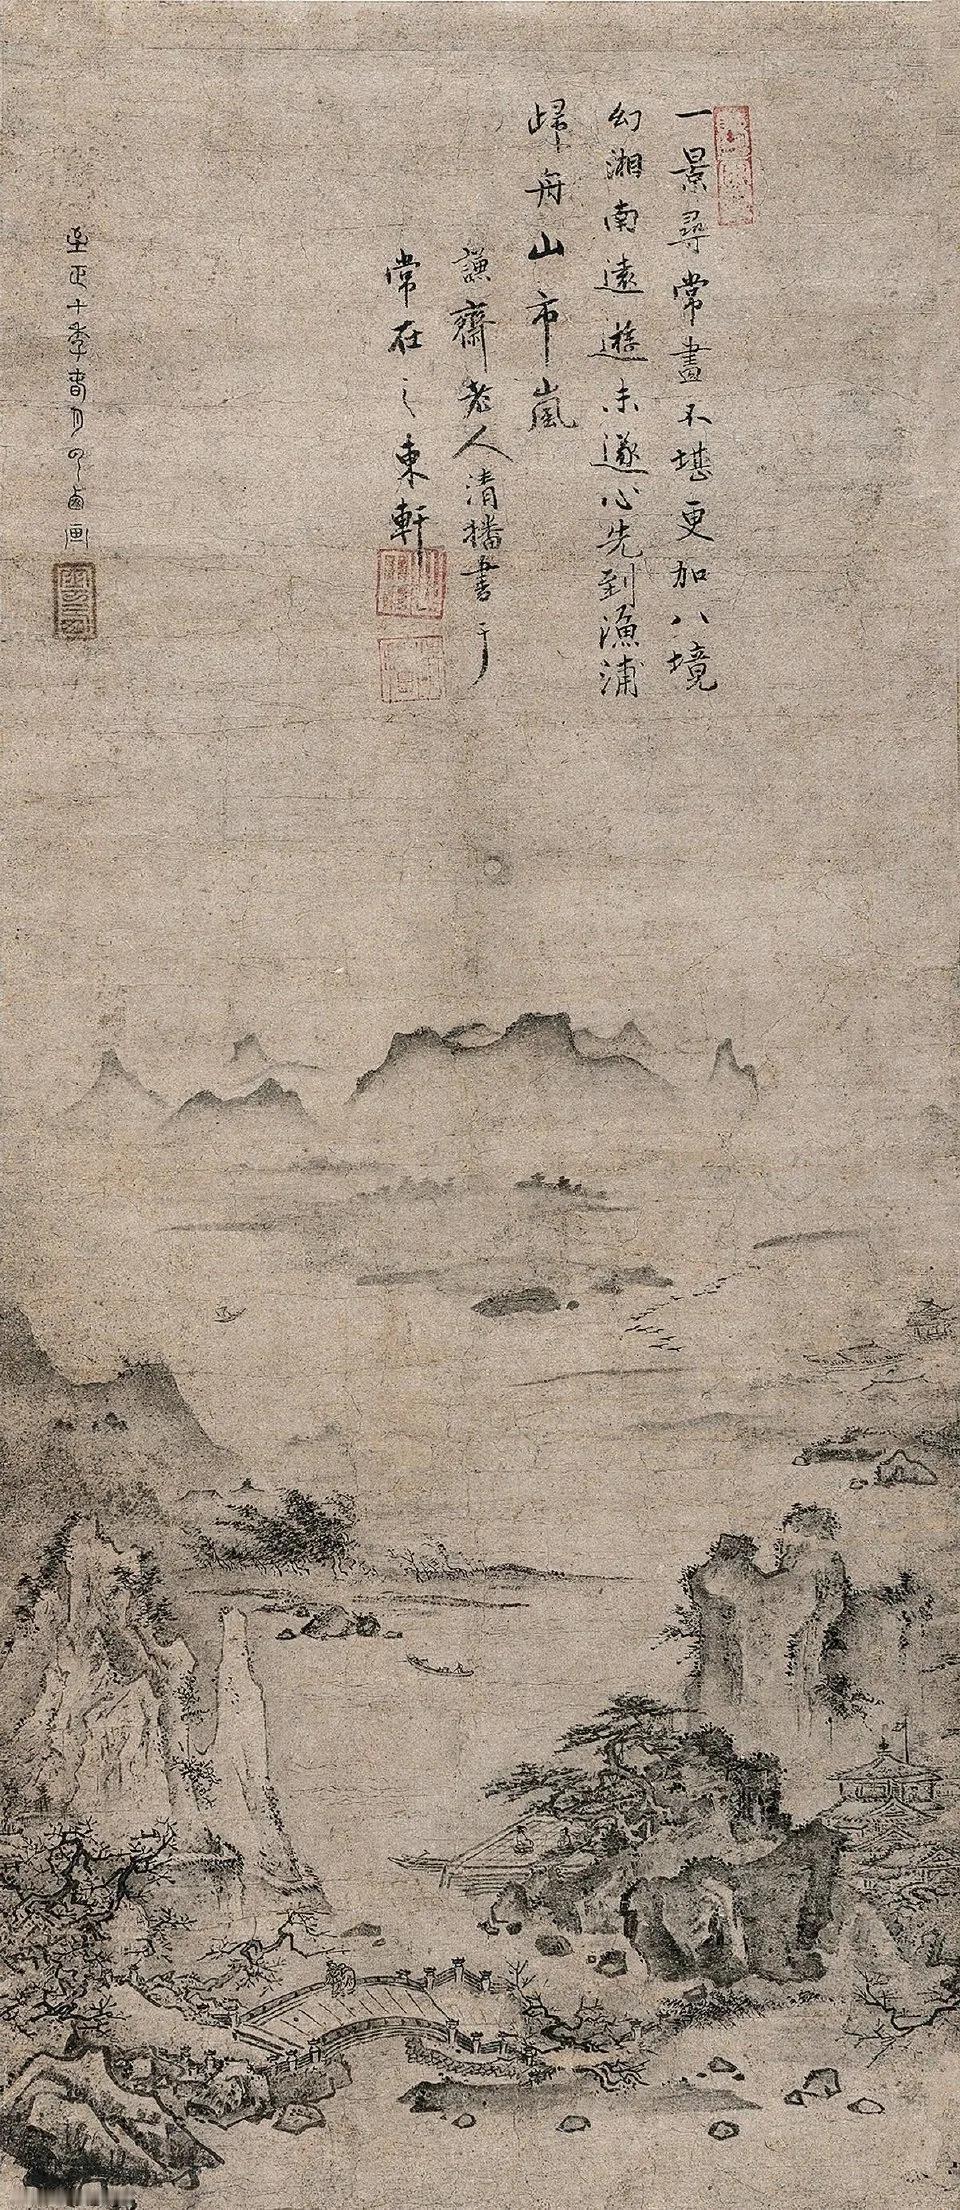 一景尋常畫不堪更加八境
幻湘南遠遊未遂心先到漁浦
歸舟山市嵐
謙齋老人清播書于
常在之東軒
至正十季春月 畫